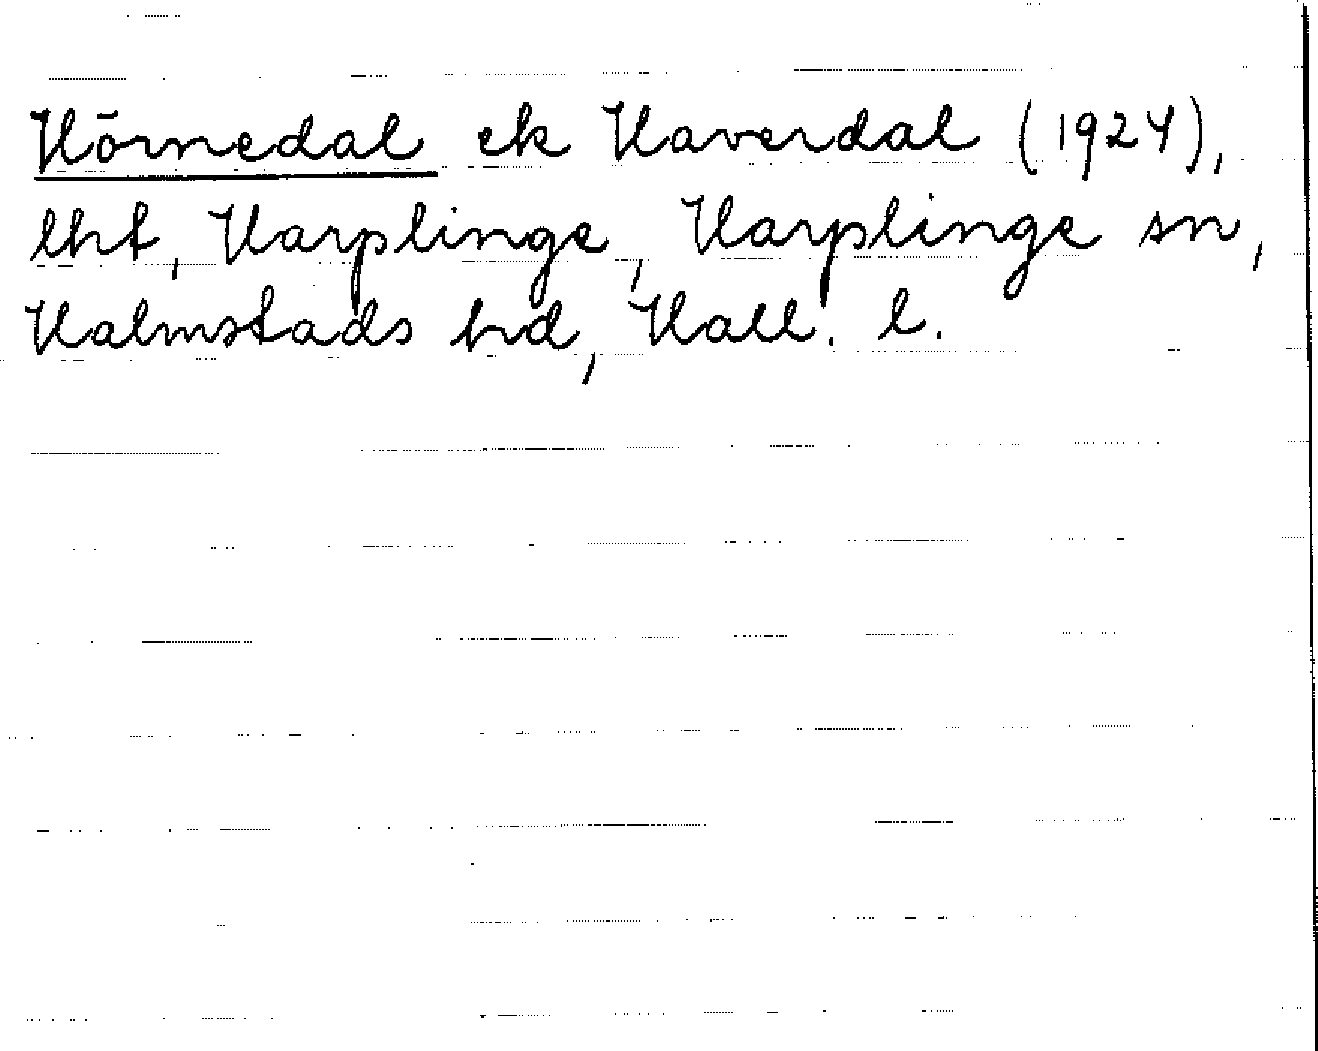 Hörnedal ek Haverdal (1924),
lht, Harplinge, Harplinge sn,
Halmstads hd, Hall. l.